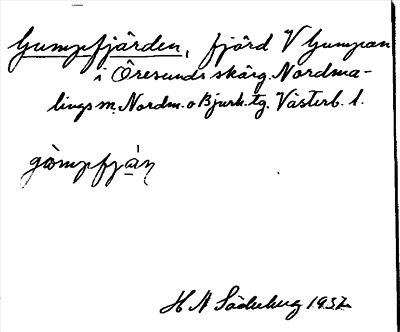 Gumpfjärden, fjärd V Gumpan
i Öresunds skärg. Nordma-
lings sn. Nordm. o Bjurh. tg. Västerb. l.
gòmpfjàɳ
H A Söderberg 1932